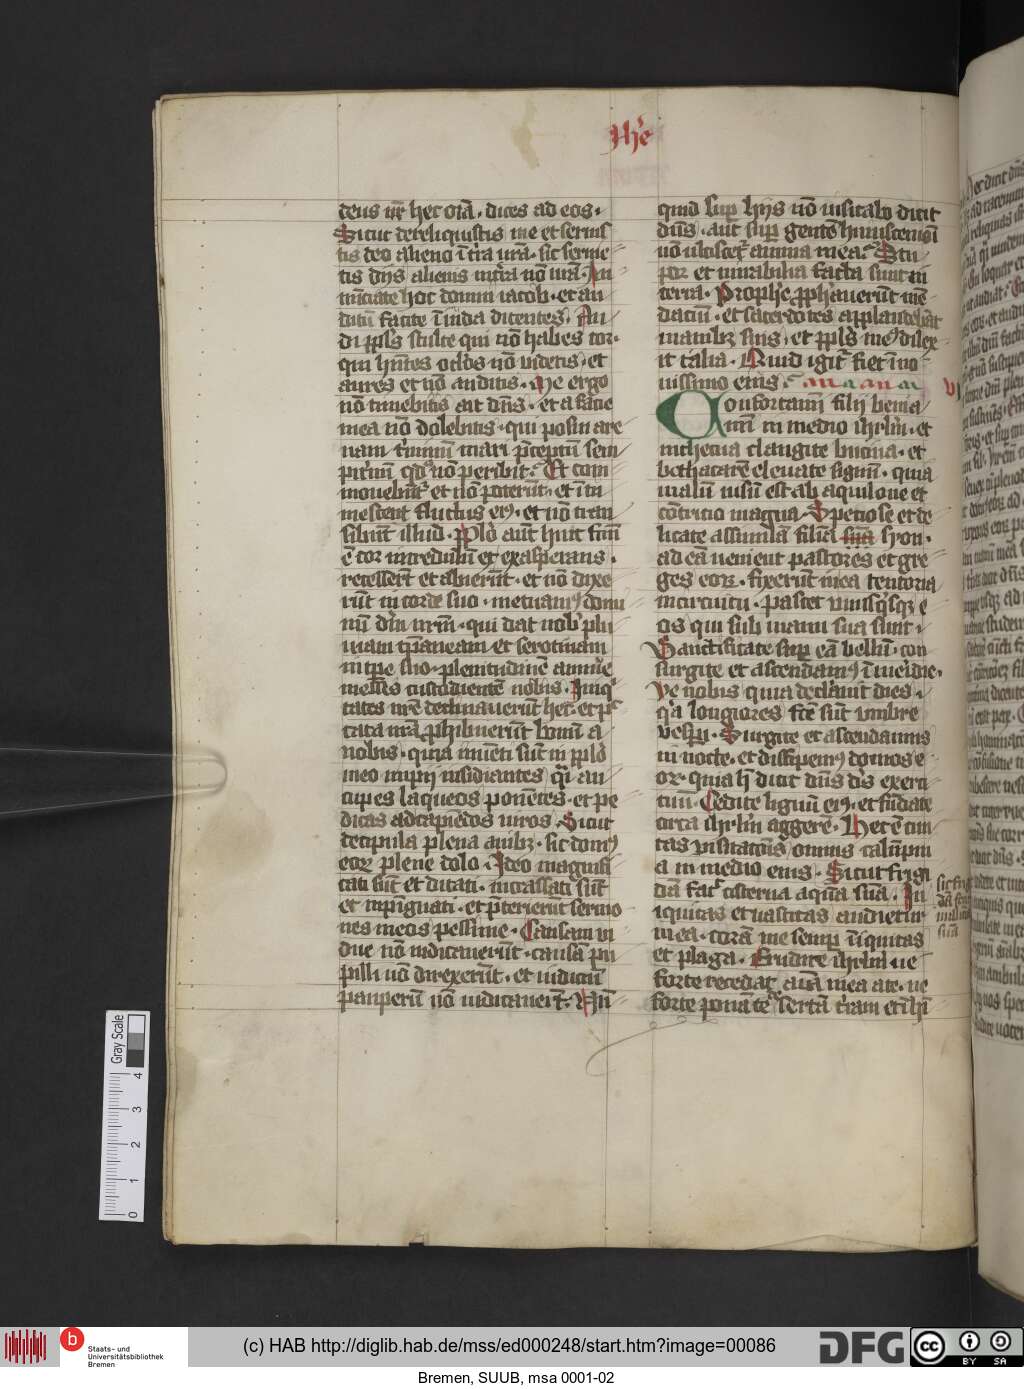 Jhe
deus nr̄ hec oīa · dices ad eos ·
Sicut dereliquistis me et seruis
tis deo alieno ī tr̄a vr̄a · sic seruie
tis dijs alienis in tr̄a nō vr̄a · An
nūciate hoc domui iacob · et au
ditū facite ī iuda dicentes · Au
di ppl's stulte qui nō habes cor ·
qui hn̄tes oc'los nō videtis · et
aures et nō auditis · Me ergo
nō timebitis ait dn̄s · et a facie
mea nō dolebitis · qui posui are
nam t'minū mari p̄ceptū sem
pit'nū qd' nō p̄teribit · Et com
mouebūt' et nō poterūt · et ītu
mescent fluctus eiꝰ · et nō tran
sibūt illud · Pplo aūt huic f̄tm̄
ē cor incredulū et exasperans ·
recesserūt et abierūt · et nō dixe
rūt in corde suo · metuamꝰ domi
nū dm̄ nr̄m · qui dat nob' plu
uiam tp̄aneam et serotinam
in tpe suo · plenitudinē annue
messis custodientē nobis · Iniq'
tates vr̄e declinauerūt hec · et p̄c
cata vr̄a ꝓhibuerūt bonū a
vobis · quia inuēti sūt in pplo
meo impij insidiantes q̄i au
cupes laqueos ponētes · et pe
dicas ad capiēdos viros · Sicut
decipula plena auibꝫ · sic domꝰ
eoꝝ plene dolo · Ideo magnifi
cati sūt et ditati · incrassati sūt
et inpīguati · et p̄terierūt sermo
nes meos pessime · Causam vi
due nō iudicauerūt · causā pu
pilli nō direxerūt · et iudiciū
pauperū nō iudicauerūt · Nū
quid sup hijs nō visitabo dicit
dn̄s · aut sup gentē huiuscemōi
nō vlciscet' anima mea · Stu
por et mirabilia facta sunt in
terra · Prophe ꝓph'auerūt mē
daciū · et sacerdotes applaudebāt
manibꝫ suis · et ppl's meꝰ dilex
it talia · Quid igit' fiet ī no
uissimo eius ·
VI
Confortamī filij benia
min in medio ihrl'm · et
in thecua clangite bucina · et
bethacarē eleuate signū · quia
malū visū est ab aquilone et
cōtricio magna · Speciose et de
licate assimilaui filiā suā syon ·
ad eā venient pastores et gre
ges eoꝝ · fixerūt in ea tentoria
in circuitu · pascet vnusqsqꝫ e
os qui sub manu sua sunt ·
Sanctificate sup eā bellū · con
surgite et ascendamꝰ ī meridie ·
Ve nobis quia declinauit dies ·
q'a longiores f̄te sūt vmbre
vesperi · Surgite et ascendamus
in nocte · et dissipemꝰ domos e
oꝝ · quia h' dicit dn̄s d's exerci
tuū · Cedite lignū eiꝰ · et fūdate
circa ihrl'm aggerē · Hec ē ciui
tas visitacōis omnis calūpni
a in medio eius · Sicut frigi
dā fac' cisterna aquā suā · In
iquitas et vastitas audietur
in ea · corā me semp īfirmitas
et plaga · Erudire ihrl'm ne
forte recedat aīa mea a te · ne
forte ponā te desertā t'ram
Gray Scale
0 1 2 3 4
(c) HAB http://diglib.hab.de/mss/ed000248/start.htm?image=00086
Staats- und
Universitätsbibliothek
Bremen
DFG
cc BY SA
Bremen, SUUB, msa 0001-02